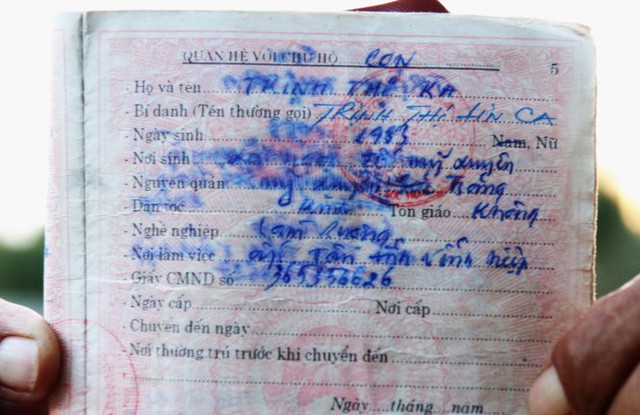 QUAN HỆ VỚI CHỦ HỘ CON
5
- Họ và tên TRỊNH THỊ KA
- Bí danh (Tên thường gọi) TRỊNH THỊ LIN CA
- Ngày sinh 1983 Nam, Nữ
- Nơi sinh Mỹ Xuyên
- Nguyên quán Sóc Trăng
- Dân tộc Kinh Tôn giáo Không
- Nghề nghiệp Làm Ruộng
- Nơi làm việc ấp Tân Anh Vĩnh Hiệp
- Giấy CMND số 365356626
- Ngày cấp Nơi cấp
- Chuyển đến ngày
- Nơi thường trú trước khi chuyển đến
Ngày....tháng....nam